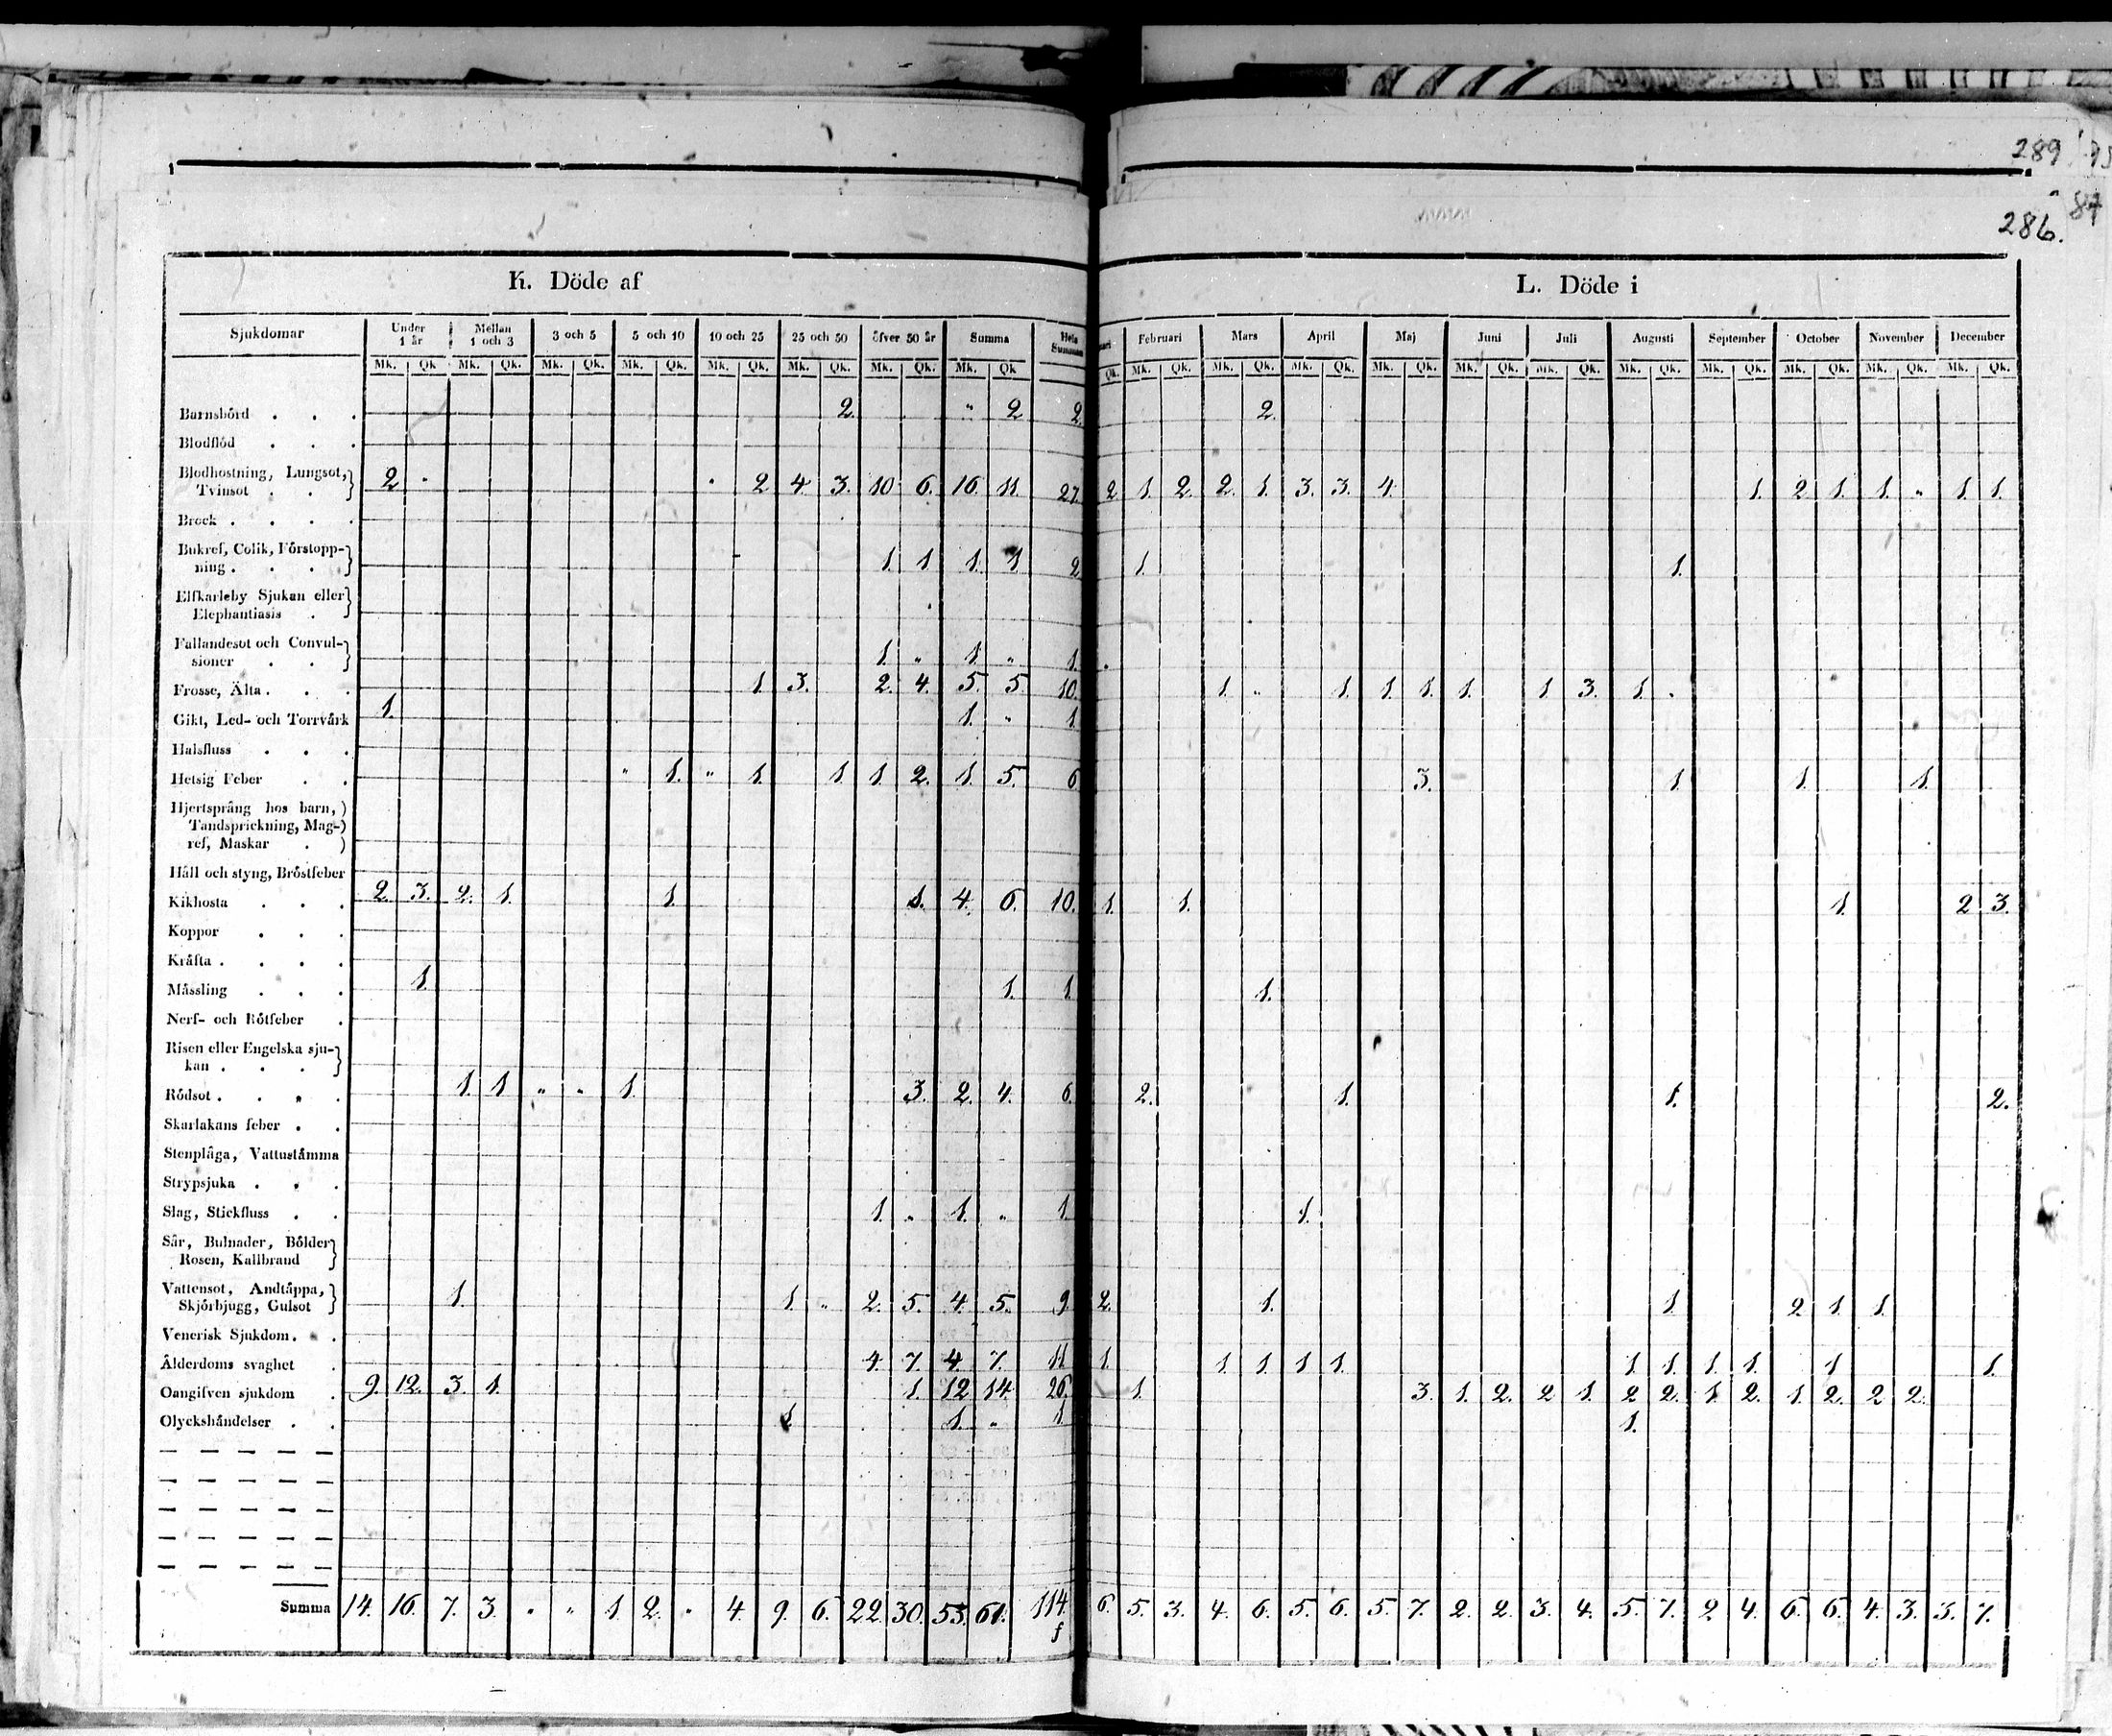 289
286.
87
K. Döde af
L. Döde i
Sjukdomar | Under 1 år | Mellan 1 och 3 | 3 och 5 | 5 och 10 | 10 och 25 | 25 och 50 | öfver 50 år | Summa | Hela Summan | Februari | Mars | April | Maj | Juni | Juli | Augusti | September | October | November | December
Mk. Qk Mk. Qk. Mk. Qk. Mk. Qk. Mk. Qk. Mk. Qk. Mk. Qk. Mk. Qk | Qk. Mk. Qk. Mk. Qk. Mk. Qk. Mk. Qk. Mk. Qk. Mk. Qk. Mk. Qk. Mk. Qk. Mk. Qk. Mk. Qk. Mk. Qk.
Barnsbörd . . . 2 " 2 2. 2.
Blodflöd . . .
Blodhostning, Lungsot,
Tvinsot . . 2 " " 2 4. 3. 10 6. 16. 11. 27. 2 1. 2. 2. 1. 3. 3. 4. 1. 2 1. 1. " 1. 1.
Brock . . . .
Bukref, Colik, Förstopp-
ning . . . . 1. 1 1. 1 2 1. 1.
Elfkarleby Sjukan eller
Elephantiasis .
Fallandesot och Convul-
sioner . . 1. " 1. " 1.
Frosse, Älta . . . 1. 3. 2. 4. 5. 5. 10. 1. " 1. 1. 1. 1. 1 3. 1. "
Gikt, Led- och Torrvärk 1. 1. " 1.
Halsfluss . . .
Hetsig Feber . . " 1. " 1. 1 1 2. 1. 5. 6 3. 1. 1. 1.
Hjertsprång hos barn,
Tandsprickning, Mag-
ref, Maskar .
Håll och styng, Bröstfeber
Kikhosta . . . 2. 3. 2. 1. 1. 1. 4. 6. 10. 1. 1. 1. 2 3.
Koppor . . .
Kräfta . . . .
Mässling . . . 1. 1. 1. 1.
Nerf- och Rötfeber .
Risen eller Engelska sju-
kan . . .
Rödsot . . . . 1. 1 " " 1. 3. 2. 4. 6. 2. 1. 1. 2.
Skarlakans feber . .
Stenplåga, Vattustämma
Strypsjuka . . .
Slag, Stickfluss . . 1. " 1. " 1. 1.
Sår, Bulnader, Bölder
Rosen, Kallbrand
Vattensot, Andtäppa,
Skjörbjugg, Gulsot 1. 1. " 2. 5. 4. 5. 9. 2. 1. 1. 2 1. 1.
Venerisk Sjukdom . . .
Ålderdoms svaghet . 4. 7. 4. 7. 11 1. 1 1 1 1. 1. 1. 1. 1. 1 1.
Oangifven sjukdom . 9. 12. 3. 1. 1. 12 14. 26. 1. 3. 1. 2. 2 1. 2 2. 1 2. 1 2. 2 2.
Olyckshändelser . . 1. 1. " 1 1.
Summa 14. 16. 7. 3. " " 1. 2. " 4. 9. 6. 22. 30. 53. 61. 114. 6. 5. 3. 4. 6. 5. 6. 5. 7. 2. 2. 3. 4. 5. 7. 2 4. 6. 6. 4. 3. 3. 7.